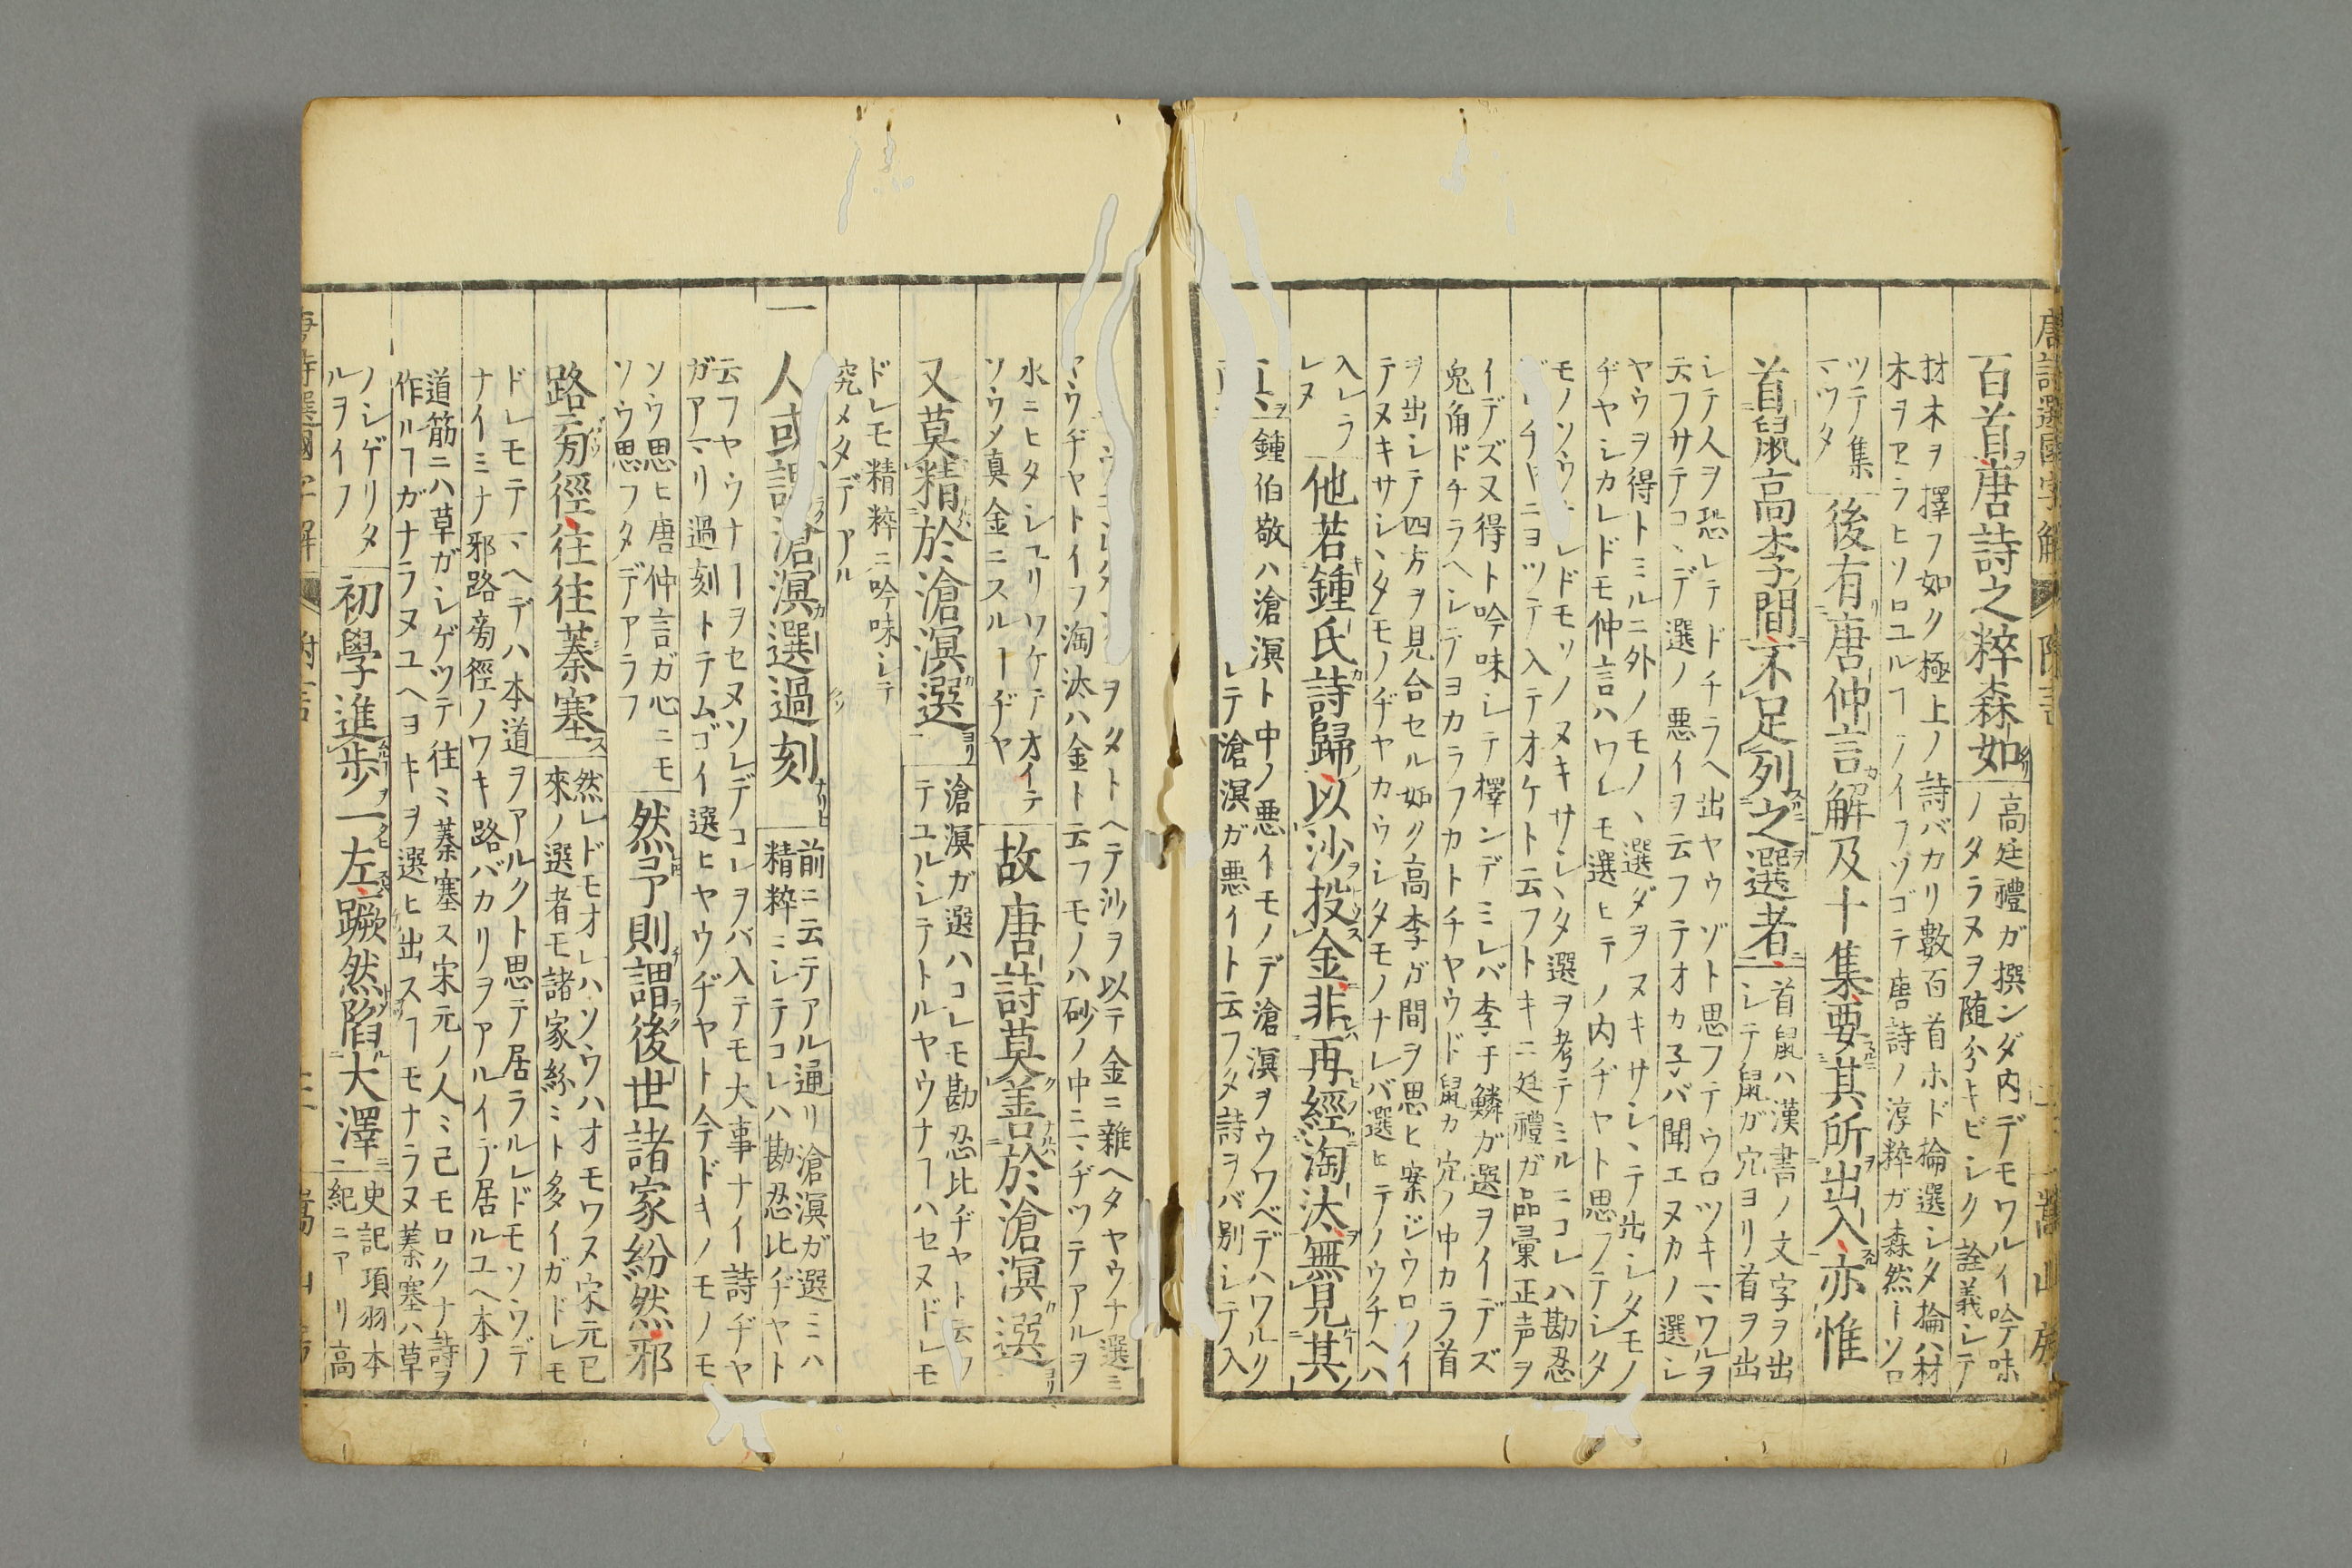 百首唐詩之粹森如
高廷禮ガ撰ンダ内デモワルイ吟味
ノタラヌヲ随分キビシク詮義シテ
材木ヲ擇フ如ク極上ノ詩バカリ數百首ホド掄選シタ掄ハ材
木ヲヱラヒソロユルヿヲイフソコテ唐詩ノ淳粹ガ森然トソロ
ツテ集
マツタ
後有唐仲言解及十集要其所出入亦惟
首鼠高李間不足列之選者
首鼠ハ漢書ノ文字ヲ出
シテ鼠ガ穴ヨリ首ヲ出
シテ人ヲ恐レテドチラヘ出ヤウゾト思フテウロツキマワルヲ
云フサテコヽデ選ノ悪イヲ云フテオカ子バ聞エヌカノ選シ
ヤウヲ得トミルニ外ノモノヽ選ダヲヌキサシヽテ出シタモノ
ヂヤシカレドモ仲言ハワレモ選ヒテノ内ヂヤト思フテシタ
モノソウ レドモソノヌキサシヽタ選ヲ考テミルニコレハ勘忍
チヤニヨツテ入テオケト云フトキニ廷禮ガ品彙正声ヲ
イデズ又得ト吟味シテ擇ンデミレバ李于鱗ガ選ヲイデズ
兔角ドチラヘシテヨカラフカトチヤウド鼠カ穴ノ中カラ首
ヲ出シテ四方ヲ見合セル如ク高李ガ間ヲ思ヒ案ジウロツイ
テヌキサシヽタモノヂヤカウシタモノナレバ選ヒテノウチヘハ
入レラ
レヌ
他若鍾氏詩歸以沙投金非再經淘汰無見其
鍾伯敬ハ滄溟ト中ノ悪イモノデ滄溟ヲウワベデハワルク
レテ滄溟ガ悪イト云フタ詩ヲバ別シテ入
ヲタトヘテ沙ヲ以テ金ニ雜ヘタヤウナ選ミ
ヤウヂヤトイフ淘汰ハ金ト云フモノハ砂ノ中ニマヂツテアルヲ
水ニヒタシユリワケテオイテ
ソウメ真金ニスルヿヂヤ
故唐詩莫善於滄溟選
又莫精於滄溟選
滄溟ガ選ハコレモ勘忍比ヂヤト云フ
テユルシテトルヤウナヿハセヌドレモ
ドレモ精粹ニ吟味シテ
究メタデアル
一
人或謂滄溟選過刻
前ニ云テアル通リ滄溟ガ選ミハ
精粹ミシテコレハ勘忍比ヂヤト
云フヤウナヿヲセヌソレデコレヲバ入テモ大事ナイ詩ヂヤ
ガアマリ過刻トテムゴイ選ヒヤウヂヤト今ドキノモノモ
ソウ思ヒ唐仲言ガ心ニモ
ソウ思フタデアラフ
然予則謂後世諸家紛然邪
路旁徑往往蓁塞
然レドモオレハソウハオモワヌ宋元已
來ノ選者モ諸家紛ミト多イガドレモ
ドレモテマヘデハ本道ヲアルクト思テ居ラルレドモソウデ
ナイミナ邪路旁徑ノワキ路バカリヲアルイデ居ルユヘ本ノ
道筋ニハ草ガシゲツテ往ミ蓁塞ス宋元ノ人ミ己モロクナ詩ヲ
作ルヿガナラヌユヘヨキヲ選ヒ出スヿモナラヌ蓁塞ハ草
ノシゲリタ
ルヲイフ
初學進步一左蹶然陷大澤
史記項羽本
紀ニアリ高